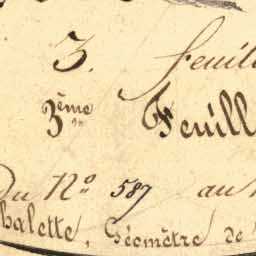 3. feuill
3ème Feuill
Du N° 587 au
halette, Géomètre de